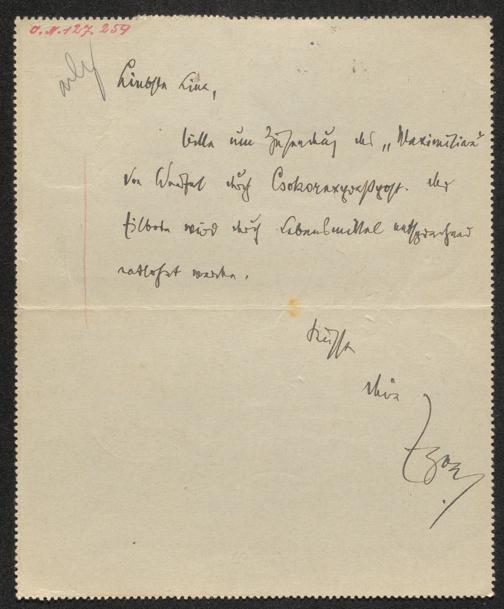 O.N.127.259
Liebste Lina,
bitte um Zusendung des „Maximilian"
von Werfel durch Csokorexpreßpost. der
Eilbote wird durch Lebensmittel entsprechend
entlohnt werden.
Küsse
Dein
Egon